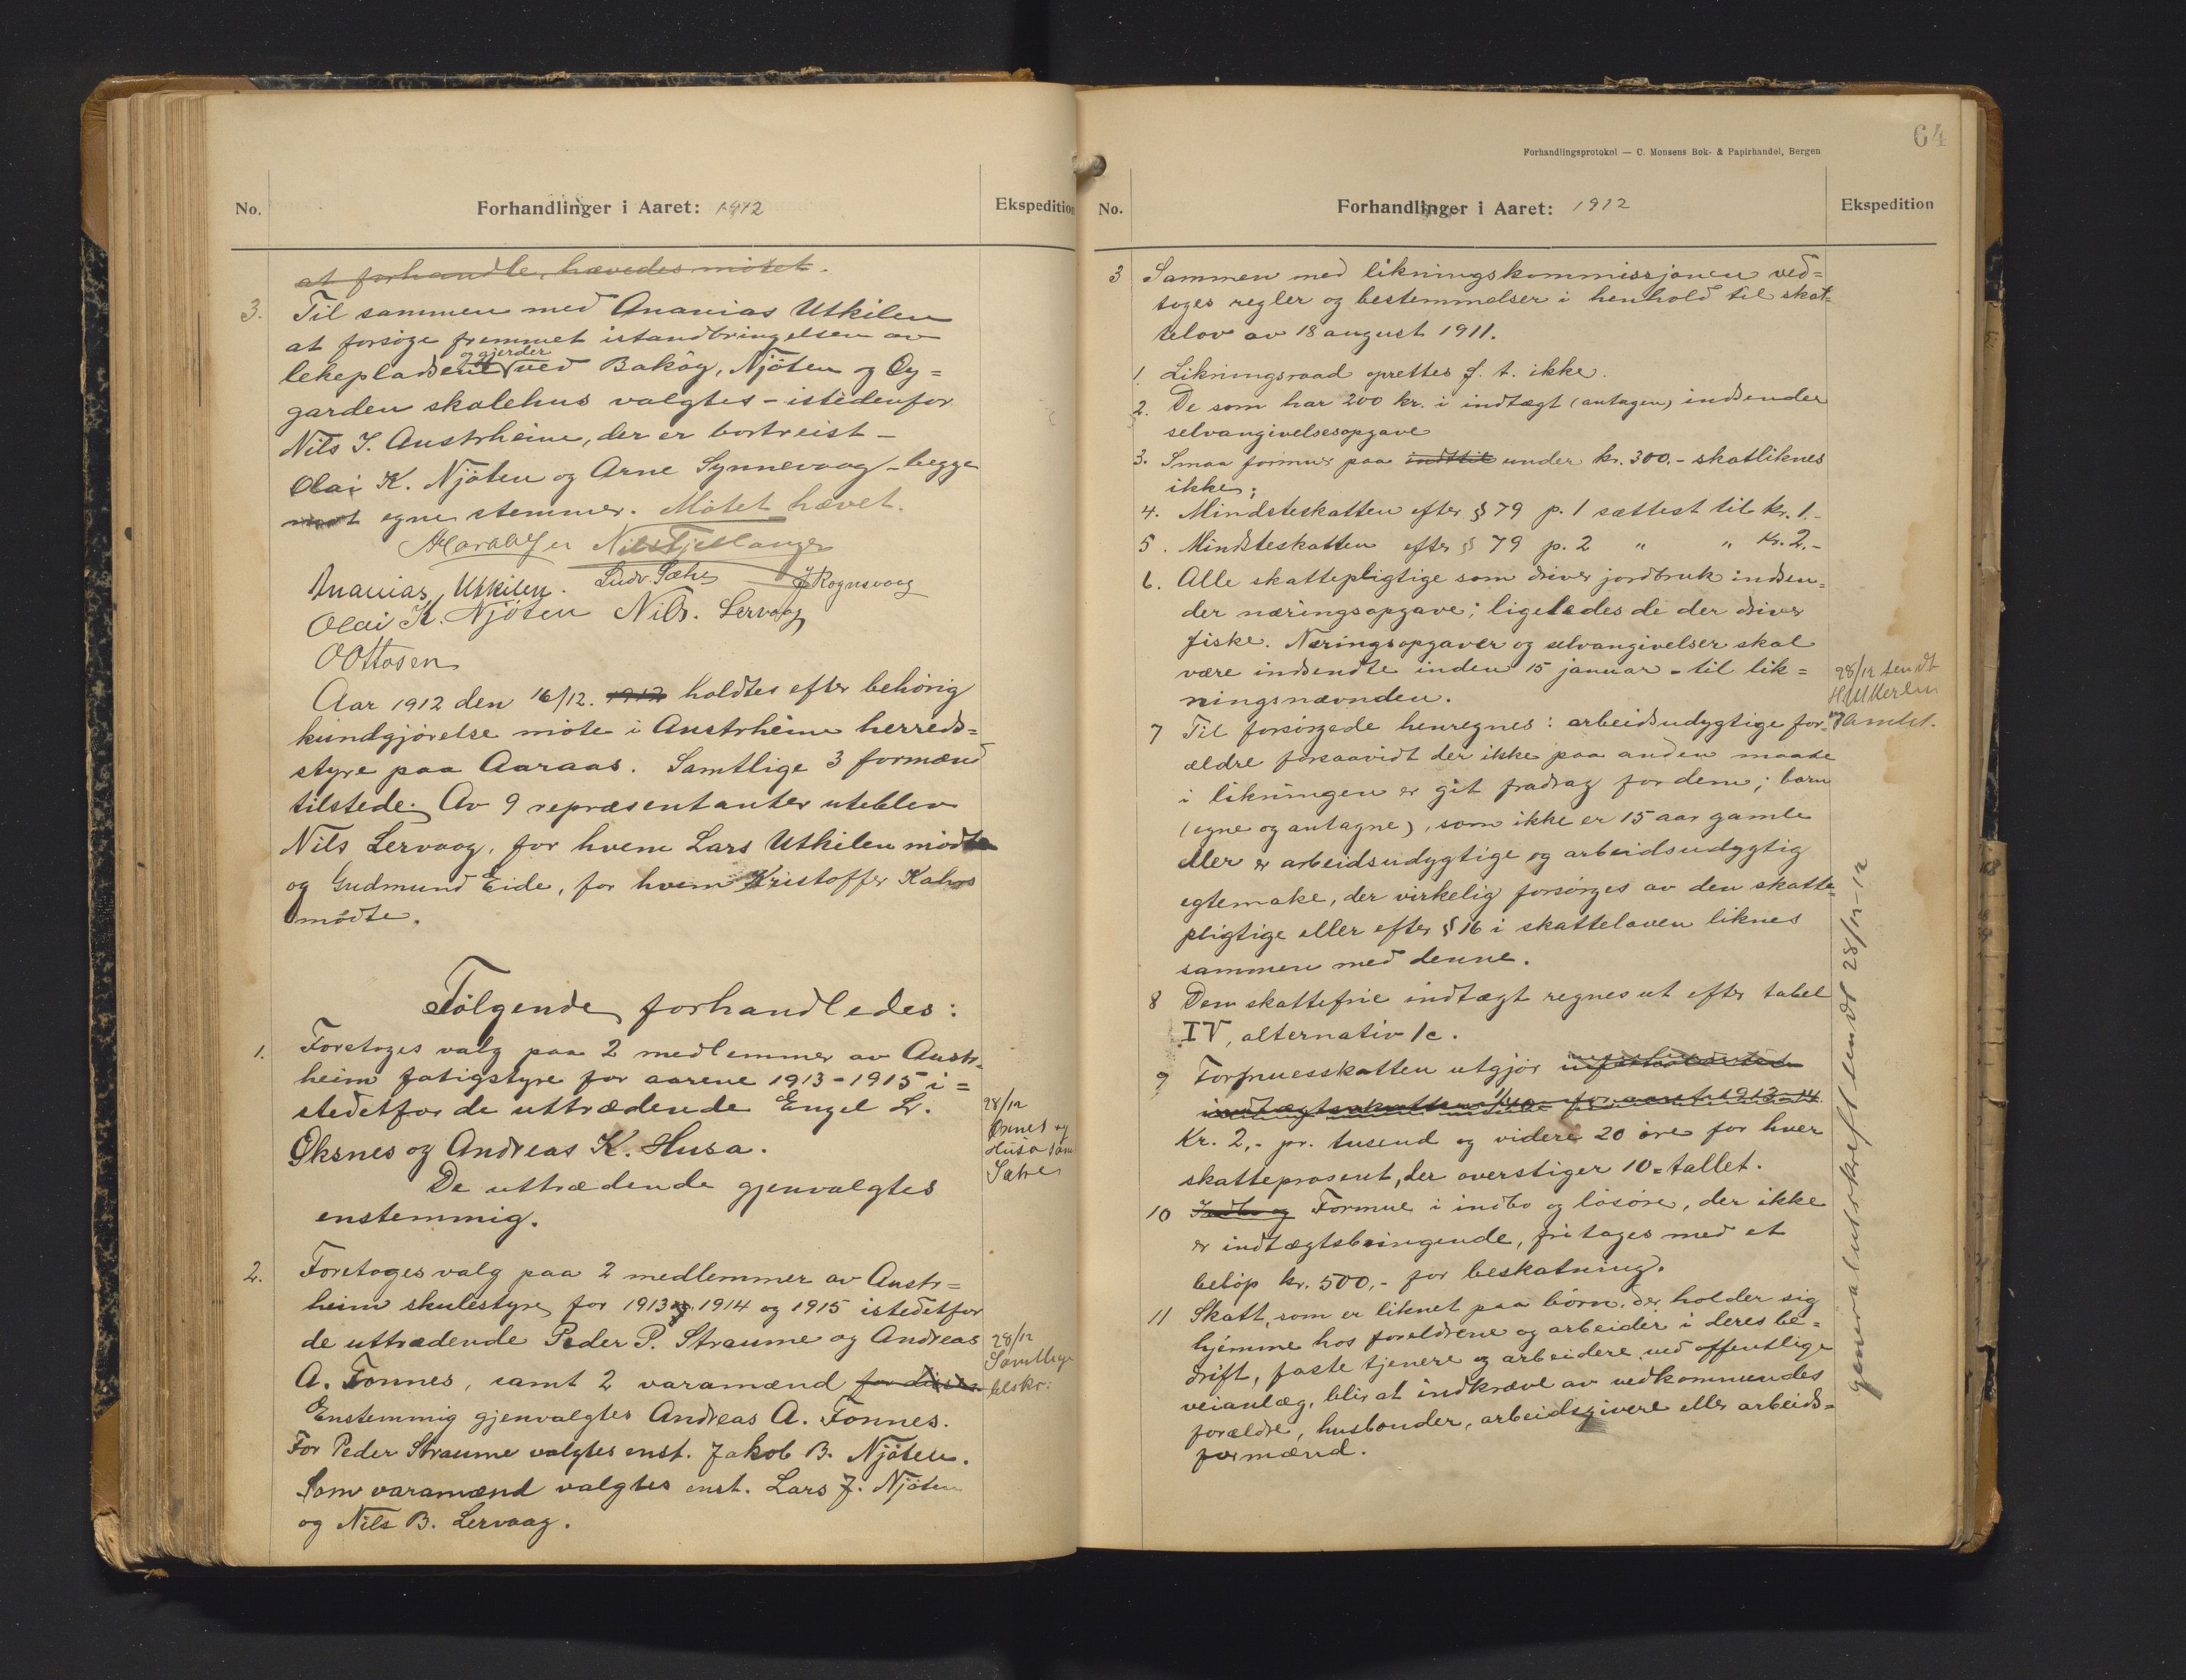 No.
Forhandlinger i Aaret: 1912
Ekspedition
at forhandle, hævedes mötet.
3. Til sammen med Ananias Utkilen
at forsöge fremmet istandbringelsen av
og gjerder
lekepladsene ved Baköy, Njöten og Öy=
garden skolehus valgtes - istedenfor
Nils J. Austrheim, der er bortreist -
Olai K. Njöten og Arne Synnevaag - begge
mot egne stemmer. Mötet hævet.
Nils Fjellanger
Ananias Utkilen. Ludv. Sæhe J Rognsvaag
Olai K. Njöten Nils. Lervaag
O Ottosen
Aar 1912 den 16/12. 1912 holdtes efter behörig
kundgjörelse möte i Austrheim herreds=
styre paa Aaraas. Samtlige 3 formænd
tilstede. Av 9 repræsentanter uteblev
Nils Lervaag, for hvem Lars Utkilen mödte
og Gudmund Eide, for hvem Kristoffer Kalvos
mödte.
Fölgende forhandledes:
1. Foretoges valg paa 2 medlemmer av Austr-
heim fatigstyre for aarene 1913-1915 i=
stedetfor de uttrædende Engel L.
Öksnes og Andreas K. Husa.
De uttrædende gjenvalgtes
enstemmig.
28/12
Öxnes og
Husa sam
Sæhe
2. Foretoges valg paa 2 medlemmer av Austr=
heim skulestyre for 1913 og 1914 og 1915 istedetfor
de uttrædende Peder P. Straume og Andreas
A. Fonnes, samt 2 varamænd for disse.
Enstemmig gjenvalgtes Andreas A. Fonnes.
For Peder Straume valgtes enst. Jakob B. Njöten.
Som varamænd valgtes enst. Lars J. Njöten
og Nils B. Lervaag.
28/12
Samtlige
tilskr.
64
Forhandlingsprotokol — C. Monsens Bok- & Papirhandel, Bergen
No.
Forhandlinger i Aaret: 1912
Ekspedition
3 Sammen med likningskommissjonen ved=
toges regler og bestemmelser i henhold til skat-
telov av 18 august 1911.
1. Likningsraad oprettes f. t. ikke.
2. De som har 200 kr. i indtægt (antagen) indsender
selvangivelsesopgave
3. Smaa formuer paa indtil under kr. 300.- skatliknes
ikke;
4. Mindsteskatten efter § 79 p. 1 sættest til kr. 1.-
5. Mindsteskatten efter § 79 p. 2 " " kr. 2,-
6. Alle skattepligtige som driver jordbruk indsen=
der næringsopgave; ligeledes de der driver
fiske. Næringsopgaver og selvangivelser skal
være indsendte inden 15 januar - til lik=
ningsnævnden.
7 Til forsörgede henregnes: arbeidsudygtige for-
ældre forsaavidt der ikke paa anden maate
i likningen er git fradrag for dem; barn
(egne og antagne), som ikke er 15 aar gamle
eller er arbeidsudygtige og arbeidsudygtig
egtemake, der virkelig forsörges av den skatte-
pligtige eller efter § 16 i skatteloven liknes
sammen med denne.
28/12 sendt
H Utkilen
og Amtet.
8 Den skattefrie indtægt regnes ut efter tabel
IV, alternativ 1c.
9 Formuesskatten utgjör
indtægtsskatten 1/10 for aaret 1913-14
Kr. 2,- pr. tusend og videre 20 öre for hver
skatteprosent, der overstiger 10=tallet.
10 Indbo og Formue i indbo og lösöre, der ikke
er indtægtsbringende, fritages med et
belöp kr. 500,- for beskatning.
11 Skatt, som er liknet paa börn, der holder sig
hjemme hos foreldrene og arbeider i deres be=
drift, faste tjenere og arbeidere ved offentlige
veianlæg, blir at indkræve av vedkommendes
forældre, husbonder, arbeidsgivere eller arbeids=
formænd.
generalutskrift sendt 28/12-12